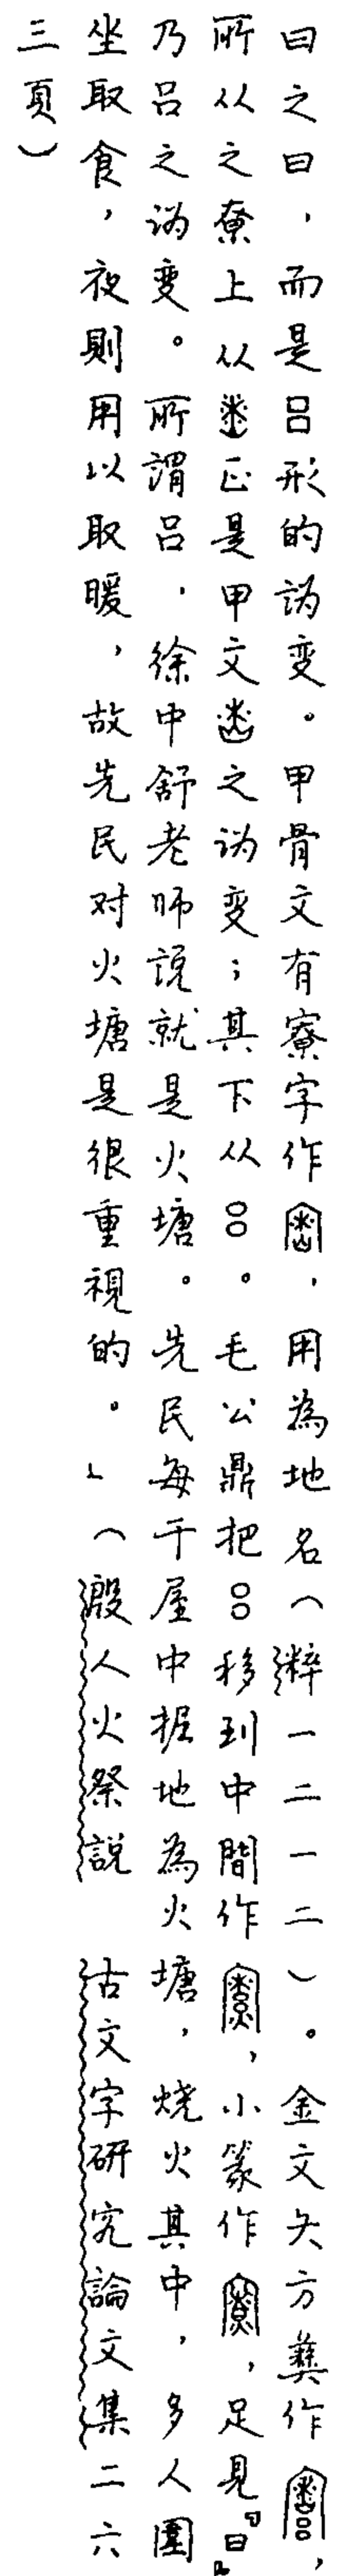 曰之曰，而是吕形的訛变。甲骨文有寮字作，用為地名（粹一二一二）。金文夨方彝作，
所从之尞上从正是甲文之訛变；其下从吕。毛公鼎把吕移到中間作，小篆作，足見『日』
乃吕之訛變。所謂吕，徐中舒老師說就是火塘。先民每于屋中掘地為火塘，烧火其中，多人圍
坐取食，夜則用以取暖，故先民对火塘是很重視的。」（殷人火祭説 古文字研究論文集二六
三頁）